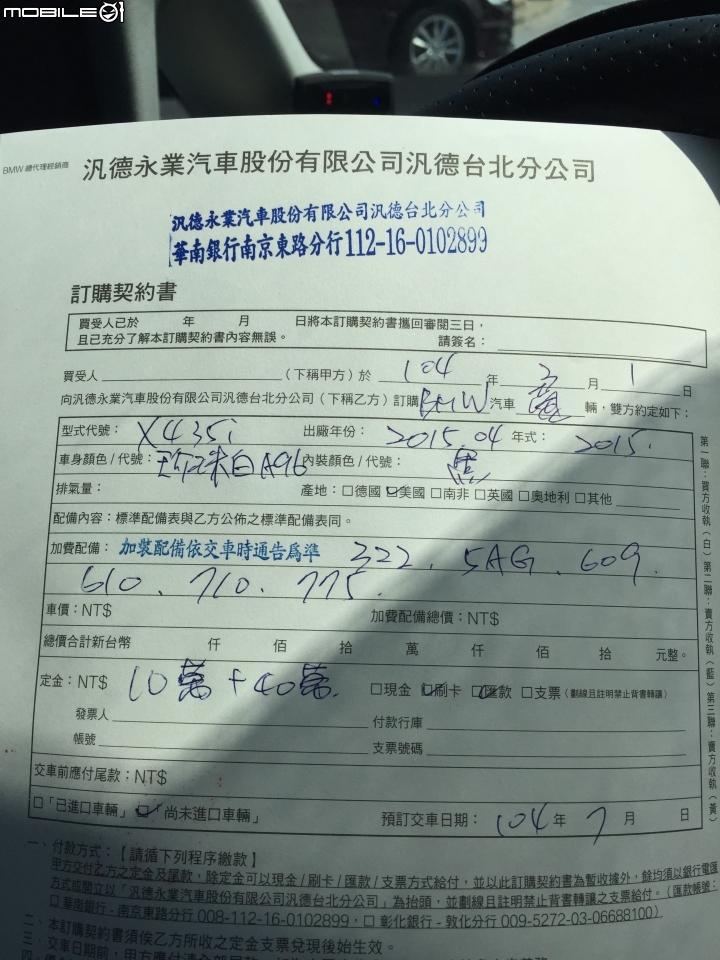 MOBILE01
BMW 總代理經銷商
汎德永業汽車股份有限公司汎德台北分公司
汎德永業汽車股份有限公司汎德台北分公司
華南銀行南京東路分行112-16-0102899
訂購契約書
買受人已於 年 月 日將本訂購契約書攜回審閱三日，
且已充分了解本訂購契約書內容無誤。 請簽名：
買受人 （下稱甲方）於 104 年 3 月 1 日
向汎德永業汽車股份有限公司汎德台北分公司（下稱乙方）訂購 BMW 汽車 輛，雙方約定如下：
型式代號： X4 35i 出廠年份： 2015.04 年式： 2015.
車身顏色/代號： 珍珠白A96 內裝顏色/代號： 黑
排氣量： 產地：□德國 ☑美國 □南非 □英國 □奧地利 □其他
配備內容：標準配備表與乙方公佈之標準配備表同。
加費配備： 加裝配備依交車時通告為準 322. 5AG. 609.
610. 710. 775.
車價：NT$ 加費配備總價：NT$
總價合計新台幣 仟 佰 拾 萬 仟 佰 拾 元整。
定金：NT$ 10萬+40萬. □現金 ☑刷卡 ☑匯款 □支票（劃線且註明禁止背書轉讓）
發票人 付款行庫
帳號 支票號碼
交車前應付尾款：NT$
□「已進口車輛」 ☑「尚未進口車輛」 預訂交車日期： 104 年 7 月 日
第一聯：買方收執（白）第二聯：賣方收執（藍）第三聯：賣方收執（黃）
一、付款方式：【請循下列程序繳款】
甲方交付乙方之定金及尾款，除定金可以現金/刷卡/匯款/支票方式給付，並以此訂購契約書為暫收據外，餘均須以銀行電匯
方式或開立以「汎德永業汽車股份有限公司汎德台北分公司」為抬頭，並劃線且註明禁止背書轉讓之支票給付。（匯款帳號：
□華南銀行-南京東路分行 008-112-16-0102899，□彰化銀行-敦化分行 009-5272-03-06688100）
二、本訂購契約書須俟乙方所收之定金支票兌現後始生效。